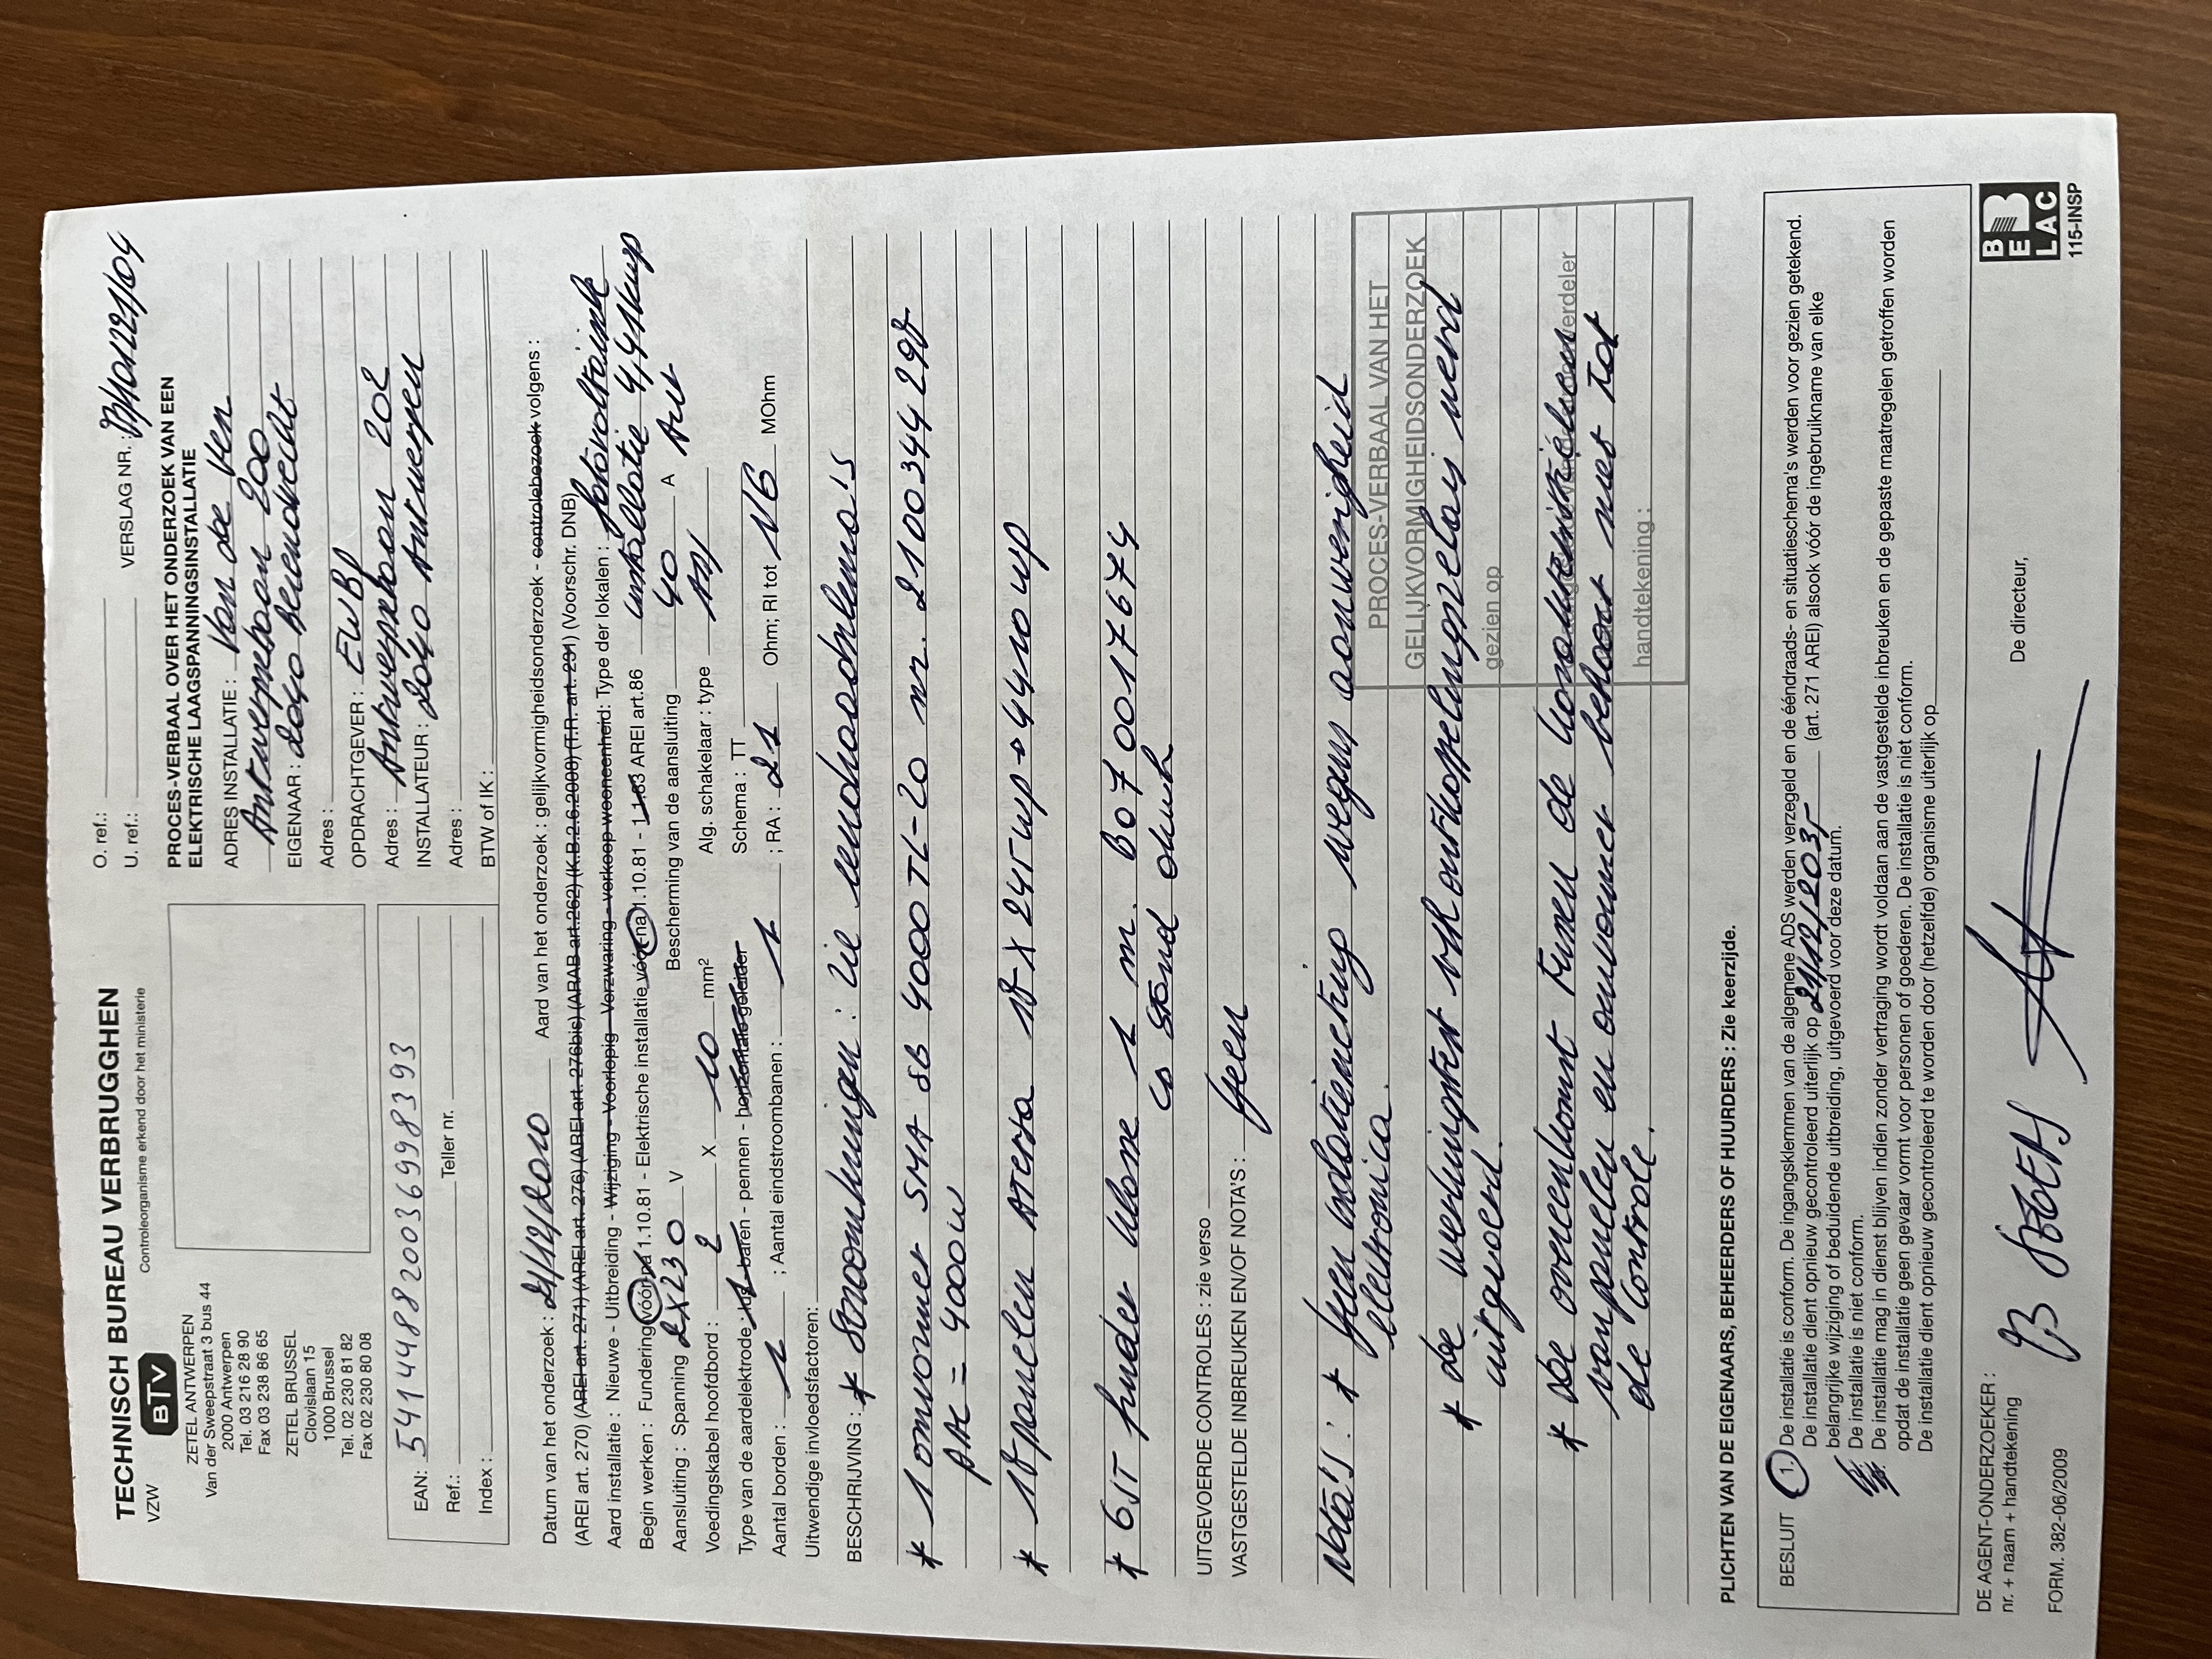 TECHNISCH BUREAU VERBRUGGHEN
VZW BTV Controleorganisme erkend door het ministerie
ZETEL ANTWERPEN
Van der Sweepstraat 3 bus 44
2000 Antwerpen
Tel. 03 216 28 90
Fax 03 238 86 65
ZETEL BRUSSEL
Clovislaan 15
1000 Brussel
Tel. 02 230 81 82
Fax 02 230 80 08
EAN: 541448820036998393
Ref.: Teller nr.
Index :
O. ref.:
U. ref.: VERSLAG NR.:
PROCES-VERBAAL OVER HET ONDERZOEK VAN EEN
ELEKTRISCHE LAAGSPANNINGSINSTALLATIE
ADRES INSTALLATIE : Van de Ven
Antwerpsebaan 200
EIGENAAR : 2040 Berendrecht
Adres :
OPDRACHTGEVER : EWBJ
Adres : Antwerpsebaan 202
INSTALLATEUR : 2040 Antwerpen
Adres :
BTW of IK :
Datum van het onderzoek : 21/12/2010 Aard van het onderzoek : gelijkvormigheidsonderzoek - controlebezoek volgens :
(AREI art. 270) (AREI art. 271) (AREI art. 276) (AREI art. 276bis) (ARAB art.262) (K.B.2.6.2008) (T.R. art. 231) (Voorschr. DNB)
Aard installatie : Nieuwe - Uitbreiding - Wijziging - Voorlopig - Verzwaring - verkoop wooneenheid: Type der lokalen : fotovoltaïsche
Begin werken : Fundering vóór-na 1.10.81 - Elektrische installatie vóór-na 1.10.81 - 1.1.83 AREI art.86 installatie 4,41kWp
Aansluiting : Spanning 2x230 V Bescherming van de aansluiting 40 A Aut
Voedingskabel hoofdbord : 2 X 10 mm² Alg. schakelaar : type
Type van de aardelektrode : lus - baren - pennen - horizontale geleider Schema : TT
Aantal borden : 1 ; Aantal eindstroombanen : 1 ; RA : 21 Ohm; RI tot 16 MOhm
Uitwendige invloedsfactoren:
BESCHRIJVING : * Stroomkringen : zie eendraadschema's
* 1 omvormer SMA SB 4000TL-20 nr. 2100344298
PAC = 4000W
* 18 panelen Atersa 18 x 245Wp → 4410Wp
* GST nr. B0700176774
stand
UITGEVOERDE CONTROLES : zie verso
VASTGESTELDE INBREUKEN EN/OF NOTA'S : Geen
Nota's : * Geen isolatiemeting wegens aanwezigheid
elektronica.
* De werkingstest v/h ontkoppelingsrelais werd
uitgevoerd.
* De overeenkomst tussen de karakteristieken
van panelen en omvormer behoort niet tot
de controle.
PROCES-VERBAAL VAN HET
GELIJKVORMIGHEIDSONDERZOEK
gezien op
handtekening :
PLICHTEN VAN DE EIGENAARS, BEHEERDERS OF HUURDERS : Zie keerzijde.
BESLUIT 1. De installatie is conform. De ingangsklemmen van de algemene ADS werden verzegeld en de ééndraads- en situatieschema's werden voor gezien getekend.
De installatie dient opnieuw gecontroleerd uiterlijk op 21/12/2035 (art. 271 AREI) alsook vóór de ingebruikname van elke
belangrijke wijziging of beduidende uitbreiding, uitgevoerd voor deze datum.
De installatie is niet conform.
De installatie mag in dienst blijven indien zonder vertraging wordt voldaan aan de vastgestelde inbreuken en de gepaste maatregelen getroffen worden
opdat de installatie geen gevaar vormt voor personen of goederen. De installatie is niet conform.
De installatie dient opnieuw gecontroleerd te worden door (hetzelfde) organisme uiterlijk op
DE AGENT-ONDERZOEKER :
nr. + naam + handtekening
De directeur,
FORM. 382-06/2009
BELAC
115-INSP